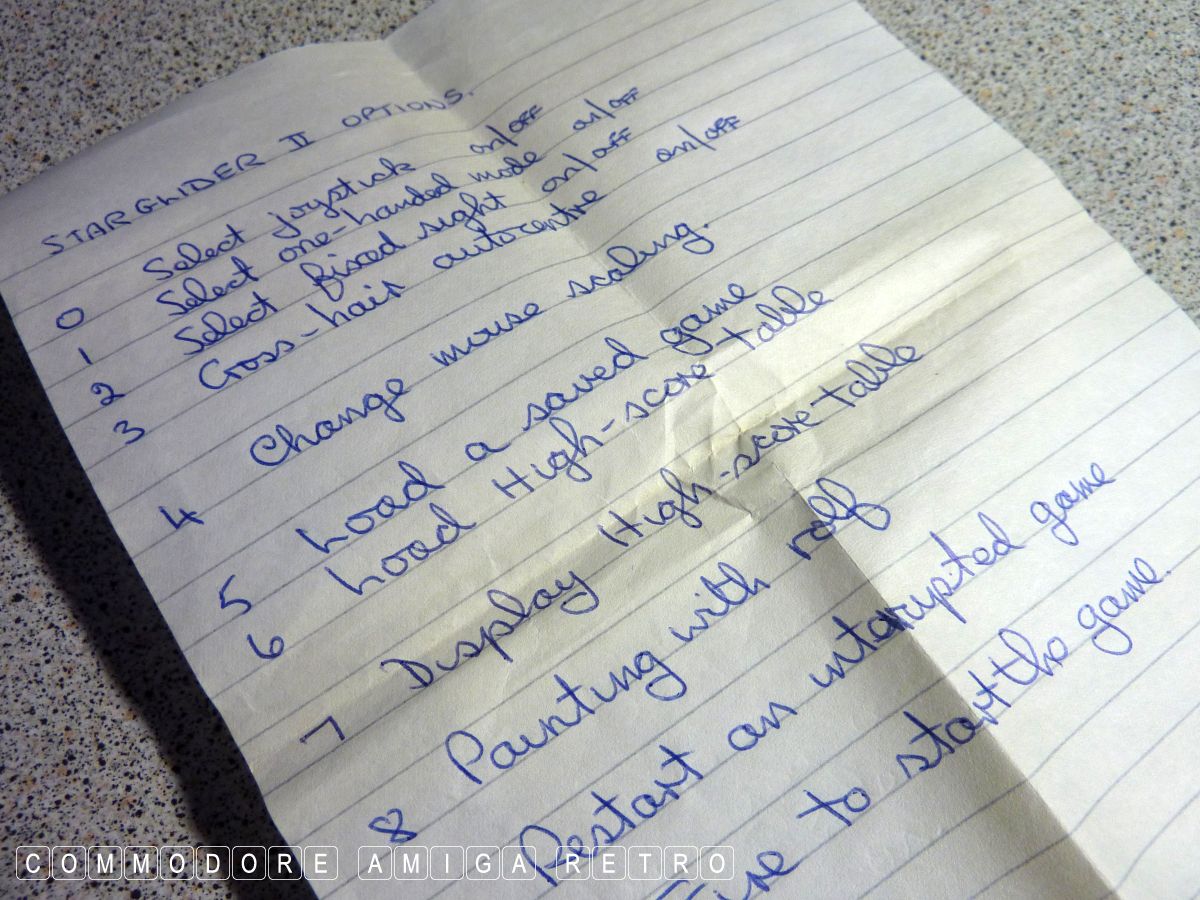 STARGLIDER II OPTIONS.
0 Select joystick on/off
1 Select one-handed mode on/off
2 Select fixed sight on/off
3 Cross-hair autocentre on/off
4 Change mouse scaling.
5 Load a saved game
6 Load High-score table
7 Display High-score-table
8 Painting with rolf
Restart an interrupted game
Fire to start the game.
COMMODORE AMIGA RETRO